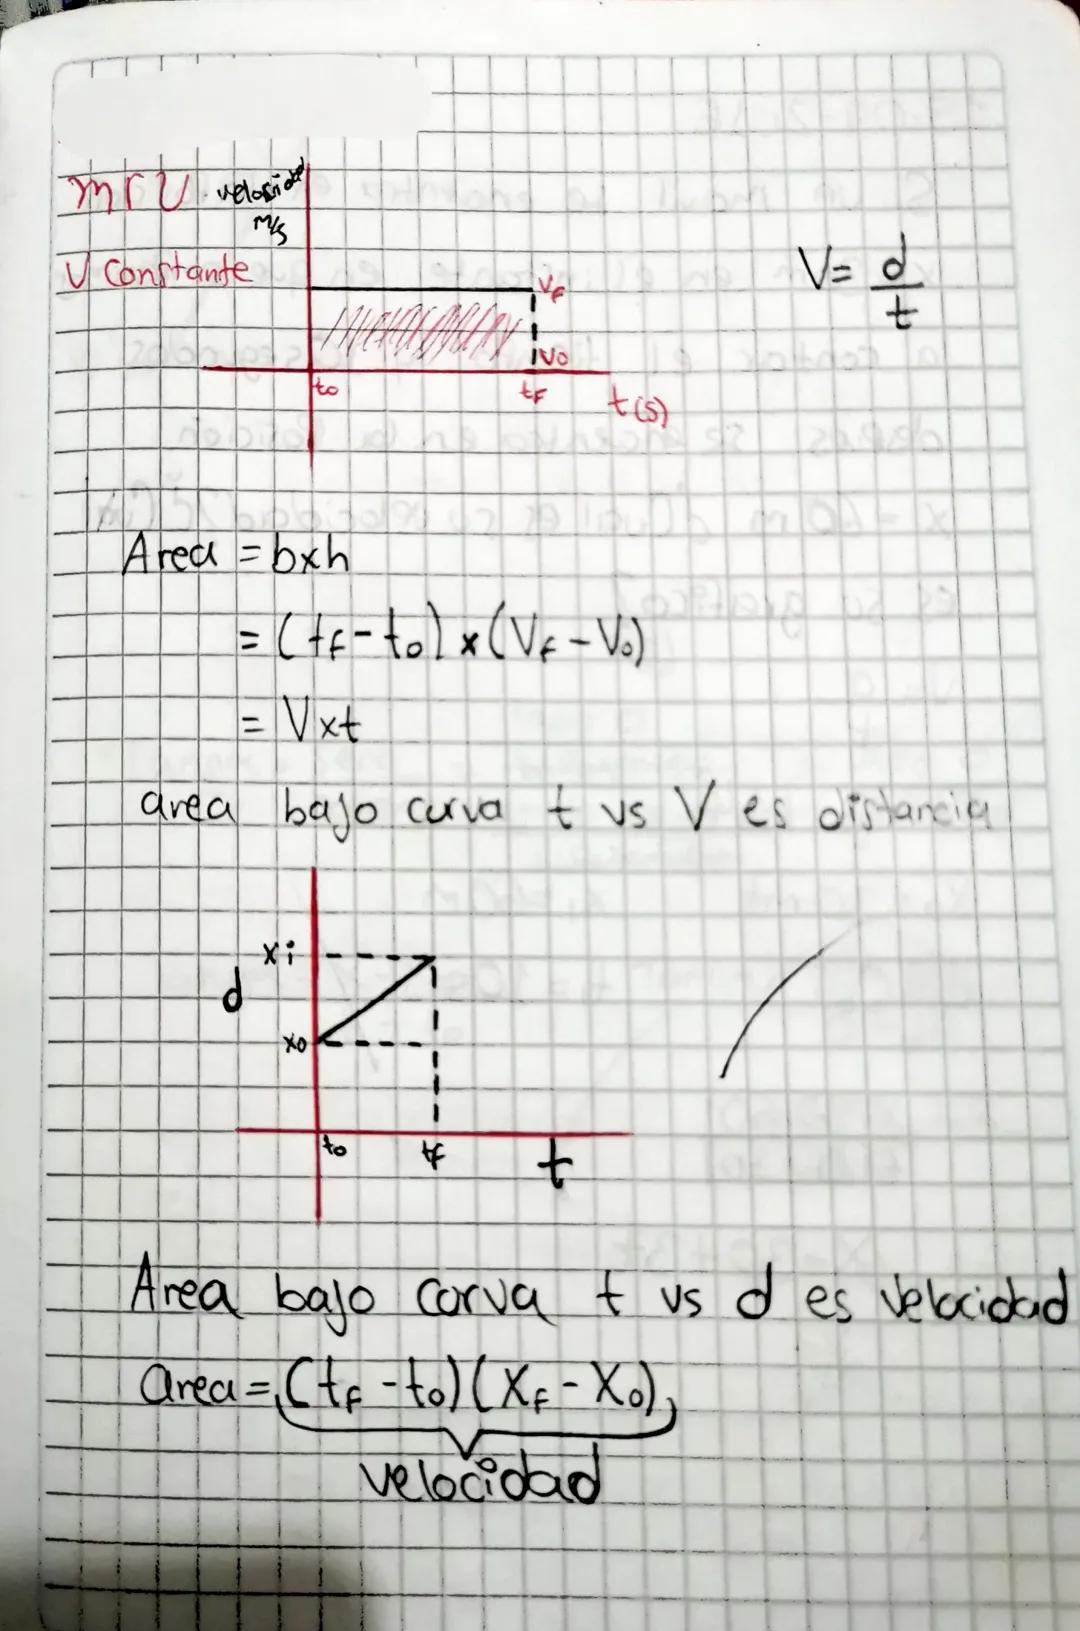 mrU velocidad
m/s
V Constante
V= d
t
VF
Vo
to
tF
t(s)
Area = bxh
= (tF-to)x(VF-Vo)
= Vxt
area bajo curva t vs V es distancia
xi
d
xo
to
tF
t
Area bajo curva t vs d es velocidad
area=(tF-to)(XF-Xo)
velocidad